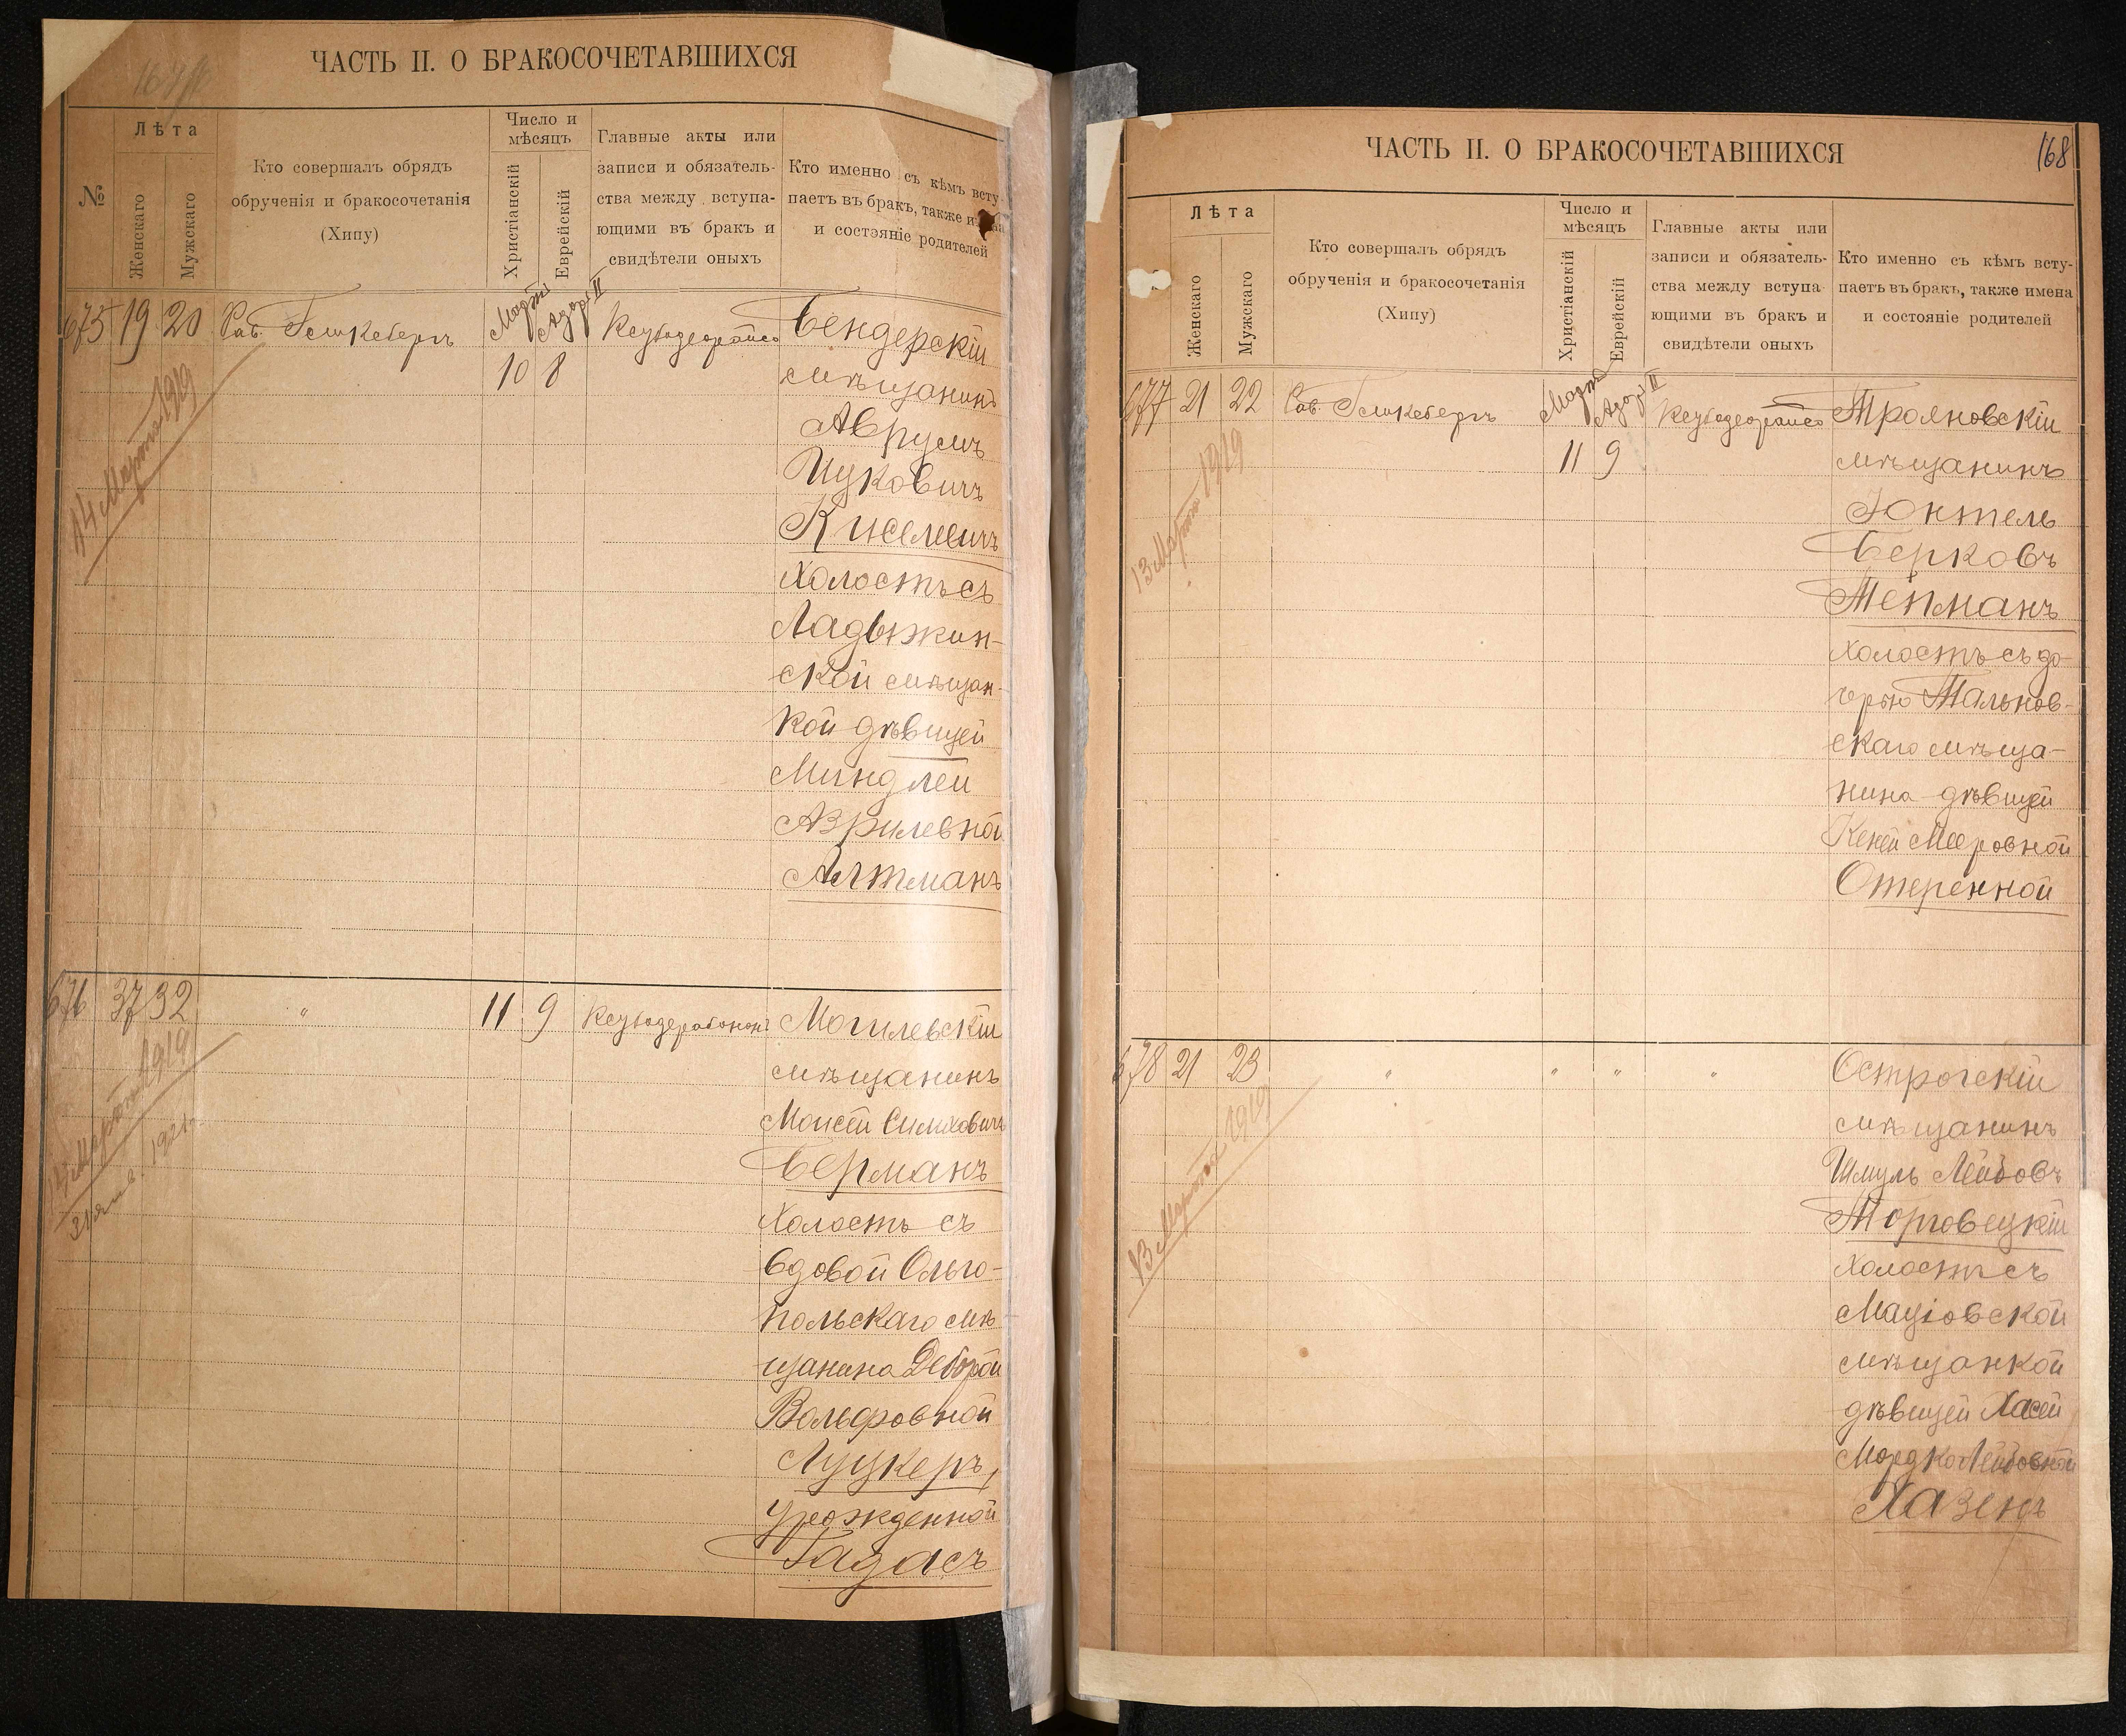 ЧАСТЬ II. О БРАКОСОЧЕТАВШИХСЯ
№
Лѣта
Женскаго
Мужскаго
Кто совершалъ обрядъ
обрученія и бракосочетанія
(Хипу)
Число и
мѣсяцъ
Христіанскій
Еврейскій
Главные акты или
записи и обязатель-
ства между вступа-
ющими въ бракъ и
свидѣтели оныхъ
Кто именно съ кѣмъ всту-
паетъ въ бракъ, также
и состояніе родителей
675 19 20
Марта Адаръ II
10 8
Бендерскій
мѣщанинъ
Аврумъ
Ицковичъ
Киселевичъ
Холостъ съ
Ладыжин-
ской мѣщан-
кой дѣвицей
Миндлей
Азрилевной
Алтманъ
14 Марта 1919
676 37 32 "
11 9
Могилевскій
мѣщанинъ
Моисей Симховичъ
Берманъ
Холостъ съ
вдовой Ольго-
польскаго мѣ-
щанина Деборой
Вольфовной
Луцкеръ,
урожденной
Гадасъ
14 Марта 1919
31 янв. 1921
ЧАСТЬ II. О БРАКОСОЧЕТАВШИХСЯ
168
Лѣта
Женскаго
Мужскаго
Кто совершалъ обрядъ
обрученія и бракосочетанія
(Хипу)
Число и
мѣсяцъ
Христіанскій
Еврейскій
Главные акты или
записи и обязатель-
ства между вступа-
ющими въ бракъ и
свидѣтели оныхъ
Кто именно съ кѣмъ всту-
паетъ въ бракъ, также имена
и состояніе родителей
677 21 22
Марта Адаръ II
11 9
Трояновскій
мѣщанинъ
Юнтель
Берковъ
Тепманъ
Холостъ съ до-
черью Тальнов-
скаго мѣща-
нина дѣвицей
Кеней Мееровной
Отеренной
13 Марта 1919
678 21 23 " " " "
Острогскій
мѣщанинъ
Шмуль Лейбовъ
Торговецкій
Холостъ съ
Маціовской
мѣщанкой
дѣвицей Хасей
Мордко Лейбовной
Хазенъ
13 Марта 1919